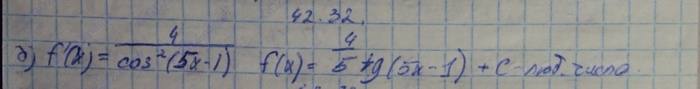 42.32.
б) f'(x) = 4/cos²(5x-1) f(x) = 4/5 tg(5x-1) + C - люб. число.